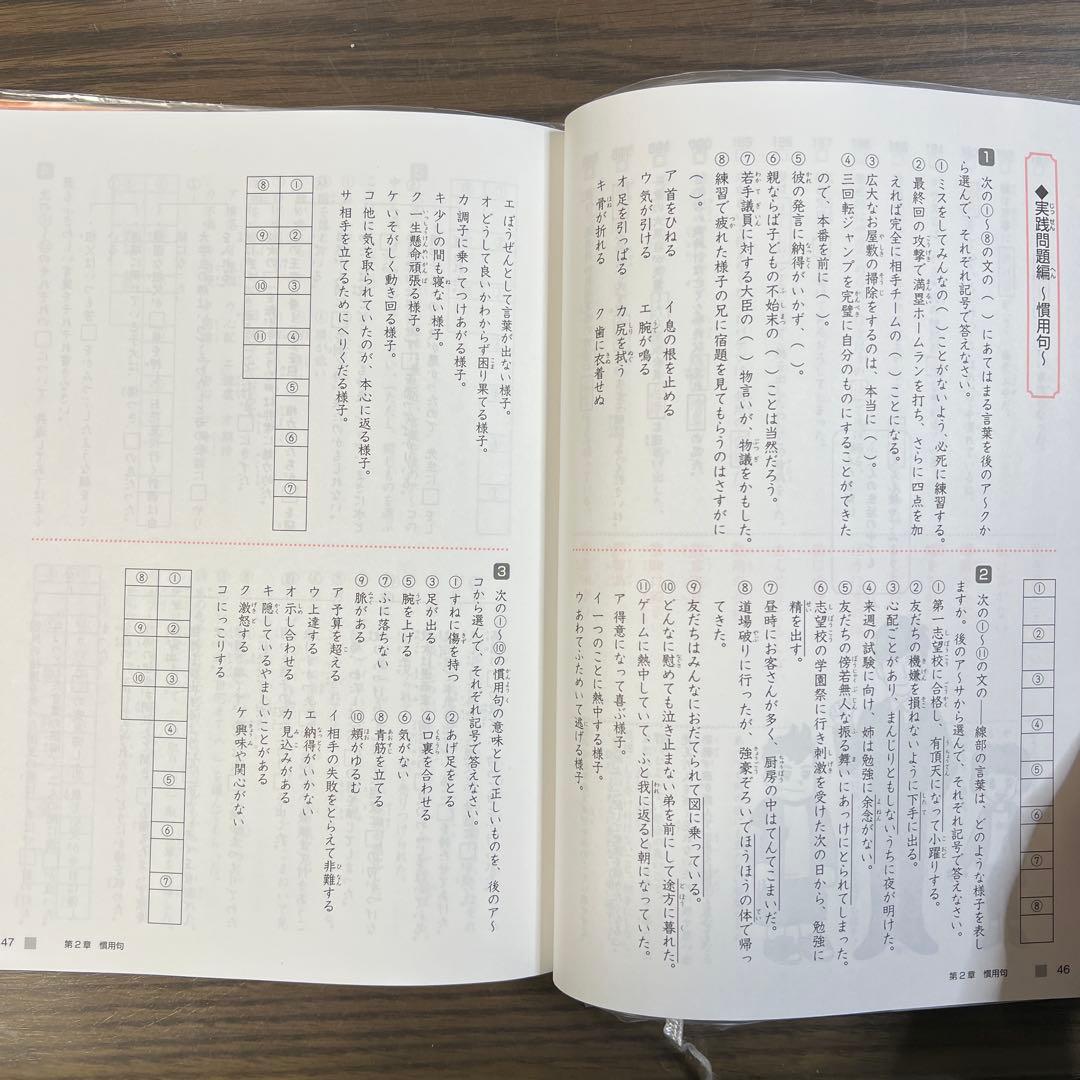 ◆実践問題編 ～慣用句～
1 次の①～⑧の文の（ ）にあてはまる言葉を後のア～クか
ら選んで、それぞれ記号で答えなさい。
①ミスをしてみんなの（ ）ことがないよう、必死に練習する。
②最終回の攻撃で満塁ホームランを打ち、さらに四点を加
えれば完全に相手チームの（ ）ことになる。
③広大なお屋敷の掃除をするのは、本当に（ ）。
④三回転ジャンプを完璧に自分のものにすることができた
ので、本番を前に（ ）。
⑤彼の発言に納得がいかず、（ ）。
⑥親ならば子どもの不始末の（ ）ことは当然だろう。
⑦若手議員に対する大臣の（ ）物言いが、物議をかもした。
⑧練習で疲れた様子の兄に宿題を見てもらうのはさすがに
（ ）。
ア 首をひねる イ 息の根を止める
ウ 気が引ける エ 腕が鳴る
オ 足を引っぱる カ 尻を拭う
キ 骨が折れる ク 歯に衣着せぬ
① ② ③ ④ ⑤ ⑥ ⑦ ⑧
2 次の①～⑪の文の――線部の言葉は、どのような様子を表し
ますか。後のア～サから選んで、それぞれ記号で答えなさい。
①第一志望校に合格し、有頂天になって小躍りする。
②友だちの機嫌を損ねないように下手に出る。
③心配ごとがあり、まんじりともしないうちに夜が明けた。
④来週の試験に向け、姉は勉強に余念がない。
⑤友だちの傍若無人な振る舞いにあっけにとられてしまった。
⑥志望校の学園祭に行き刺激を受けた次の日から、勉強に
精を出す。
⑦昼時にお客さんが多く、厨房の中はてんてこまいだ。
⑧道場破りに行ったが、強豪ぞろいでほうほうの体で帰っ
てきた。
⑨友だちはみんなにおだてられて図に乗っている。
⑩どんなに慰めても泣き止まない弟を前にして途方に暮れた。
⑪ゲームに熱中していて、ふと我に返ると朝になっていた。
ア 得意になって喜ぶ様子。
イ 一つのことに熱中する様子。
ウ あわてふためいて逃げる様子。
第２章 慣用句
46
エ ぼうぜんとして言葉が出ない様子。
オ どうして良いかわからず困り果てる様子。
カ 調子に乗ってつけあがる様子。
キ 少しの間も寝ない様子。
ク 一生懸命頑張る様子。
ケ いそがしく動き回る様子。
コ 他に気を取られていたのが、本心に返る様子。
サ 相手を立てるためにへりくだる様子。
① ② ③ ④ ⑤ ⑥ ⑦
⑧ ⑨ ⑩ ⑪
3 次の①～⑩の慣用句の意味として正しいものを、後のア～
コから選んで、それぞれ記号で答えなさい。
①すねに傷を持つ ②あげ足をとる
③足が出る ④口裏を合わせる
⑤腕を上げる ⑥気がない
⑦ふに落ちない ⑧青筋を立てる
⑨脈がある ⑩頬がゆるむ
ア 予算を超える イ 相手の失敗をとらえて非難する
ウ 上達する エ 納得がいかない
オ 示し合わせる カ 見込みがある
キ 隠しているやましいことがある
ク 激怒する ケ 興味や関心がない
コ にっこりする
① ② ③ ④ ⑤ ⑥ ⑦
⑧ ⑨ ⑩
47
第２章 慣用句